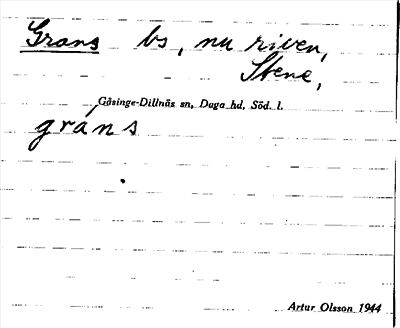 Grans bs, nu riven,
Stene,
Gåsinge-Dillnäs sn, Daga hd, Söd. l.
gráns
Artur Olsson 1944